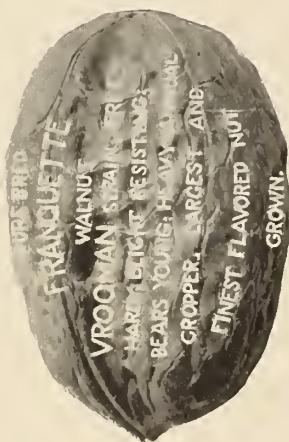 PURE BRED
FRANQUETTE
WALNUT
VROOMAN STRAIN
HARDY, BLIGHT RESISTING:
BEARS YOUNG: HEAVY
CROPPER. LARGEST AND
FINEST FLAVORED NUT
GROWN.